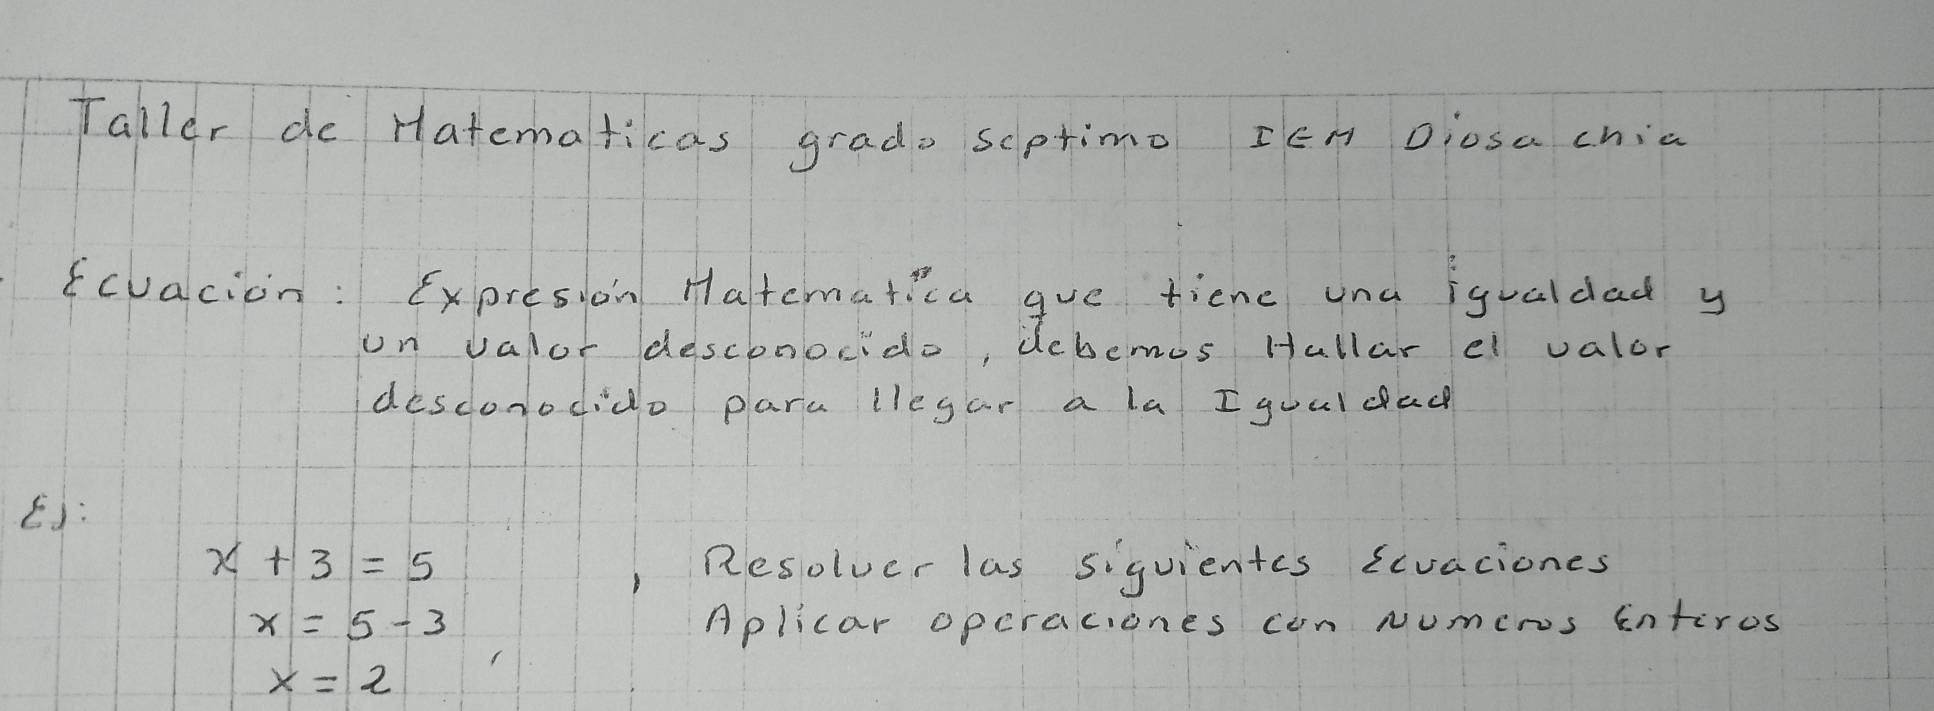 Taller de Matematicas grado septimo IEM Diosa chia
Ecuación: Expresión Matematica que tiene una igualdad y
un valor desconocido, debemos Hallar el valor
desconocido para llegar a la Igualdad
Ej:
x + 3 = 5 , Resolver las siguientes Ecuaciones
x = 5 - 3 Aplicar operaciones con Numeros Enteros
x = 2